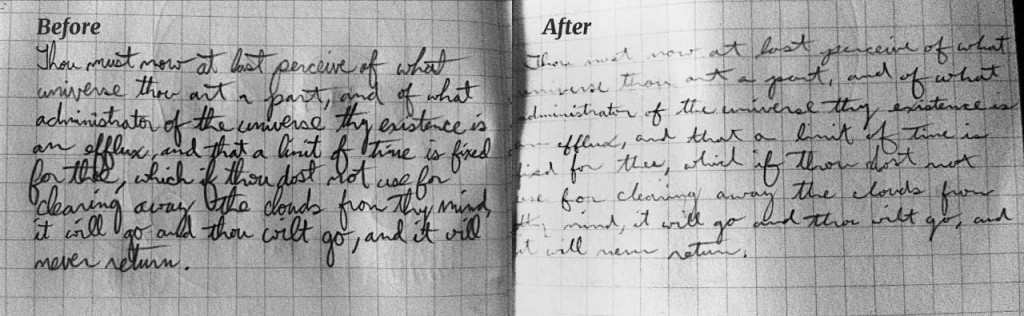 Before
Thou must now at last perceive of what
universe thou art a part, and of what
administrator of the universe thy existence is
an efflux, and that a limit of time is fixed
for thee, which if thou dost not use for
clearing away the clouds from thy mind,
it will go and thou wilt go, and it will
never return.
After
Thou must now at last perceive of what
universe thou art a part, and of what
administrator of the universe thy existence is
an efflux, and that a limit of time is
fixed for thee, which if thou dost not
use for clearing away the clouds from
thy mind, it will go and thou wilt go, and
it will never return.